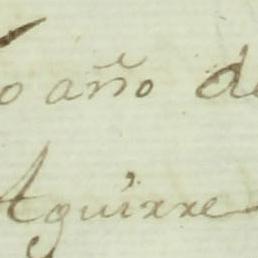 o año de
Aguirre